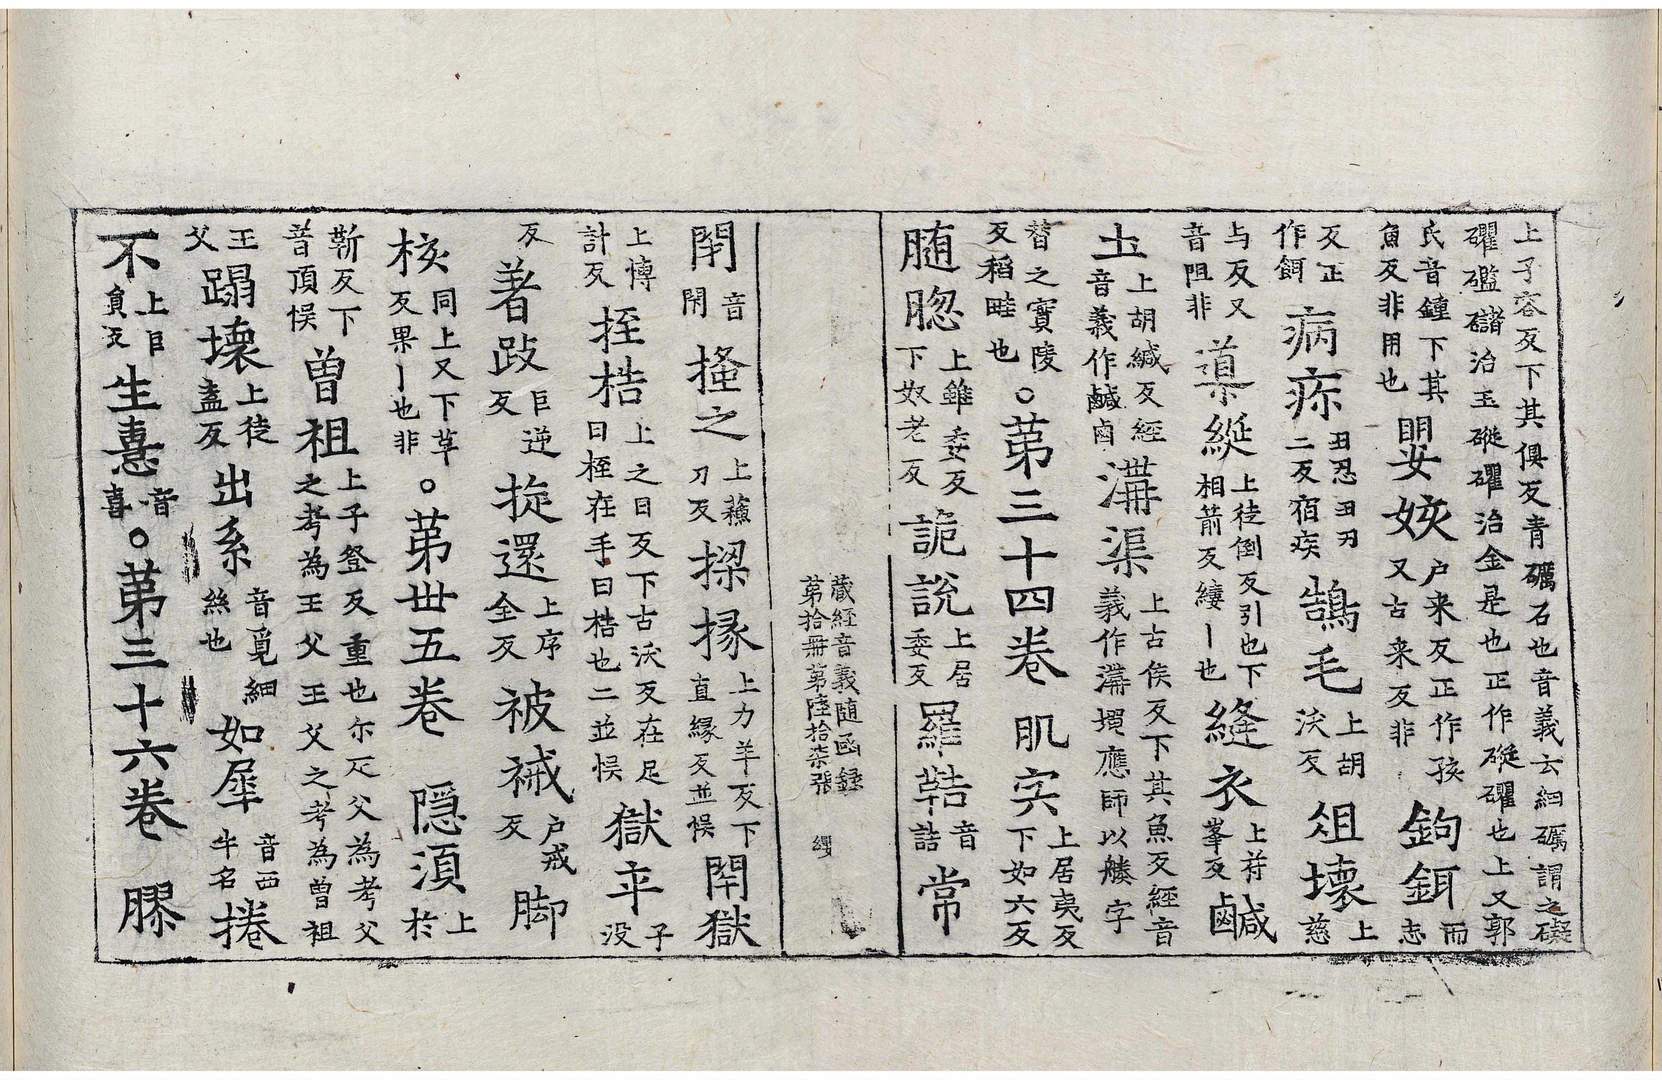 上子容反下其俱反青礪石也音義云細礪謂之䃘
礭䃘磫治玉磫礭治金是也正作磫礭也上又郭
氏音鍾下其魚反非用也 㛤姟户来反正作孩又古来反非 鉤鉺而志
反正作餌 病疢丑忍丑刃二反宿疾 鵠毛上胡沃反 俎壞上慈
与反又音阻非 導綖上徒倒反引也下相箭反縷丨也 縫衣上符峯反 鹹
土上胡緘反經音義作鹹鹵 溝渠上古侯反下其魚反經音義作溝埧應師以艛字
替之實陵反稻畦也。第三十四卷 肌宍上居夷反下如六反
随𦛁上雖委反下奴老反 詭說上居委反 羅鞊音詰 常
藏經音義随函録
第拾冊第陸拾柒張 纓
閇音閑 搔之上蘓刀反 掾掾上力羊反下直縁反並悮 閇獄
上愽計反 桎梏上之日反下古沃反在足曰桎在手曰梏也二並悮 獄卒子没
反 著䟦巨逆反 㨞還上序全反 被裓户戒反 脚
核同上又下革反果丨也非。苐丗五卷 隠湏上於
靳反下音頂悮 曽祖上子登反重也尒疋父為考父之考為王父王父之考為曽祖
王父 蹋壞上徒盍反 出系音覓細絲也 如犀音西牛名 捲
不上巨負反 生憙音喜。苐三十六卷 膠